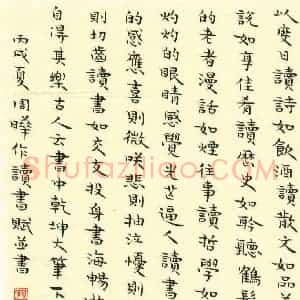 以度日讀詩如飲酒讀散文如品
說如享佳肴讀歷史如聆聽鶴髮
的老者漫話如煙往事讀哲學如
灼灼的眼睛感覺光芒逼人讀書
的感應喜則微咲悲則抽泣憂則
則切齒讀書如交友投身書海暢
自得其樂古人云書中乾坤大筆下
丙戌夏周曄作讀書賦並書
Shufaziliao.com